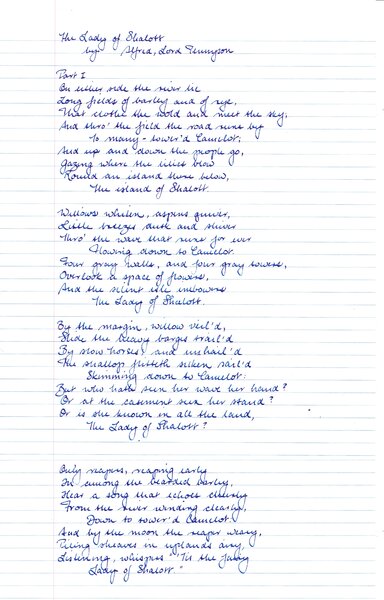 The Lady of Shalott
by Alfred, Lord Tennyson
Part I
On either side the river lie
Long fields of barley and of rye,
That clothe the wold and meet the sky;
And thro' the field the road runs by
To many-tower'd Camelot;
And up and down the people go,
Gazing where the lilies blow
Round an island there below,
The island of Shalott.
Willows whiten, aspens quiver,
Little breezes dusk and shiver
Thro' the wave that runs for ever
Flowing down to Camelot.
Four gray walls, and four gray towers,
Overlook a space of flowers,
And the silent isle imbowers
The Lady of Shalott.
By the margin, willow veil'd,
Slide the heavy barges trail'd
By slow horses; and unhail'd
The shallop flitteth silken sail'd
Skimming down to Camelot:
But who hath seen her wave her hand?
Or at the casement seen her stand?
Or is she known in all the land,
The Lady of Shalott?
Only reapers, reaping early
In among the bearded barley,
Hear a song that echoes cheerly
From the river winding clearly,
Down to tower'd Camelot:
And by the moon the reaper weary,
Piling sheaves in uplands airy,
Listening, whispers "'Tis the fairy
Lady of Shalott."